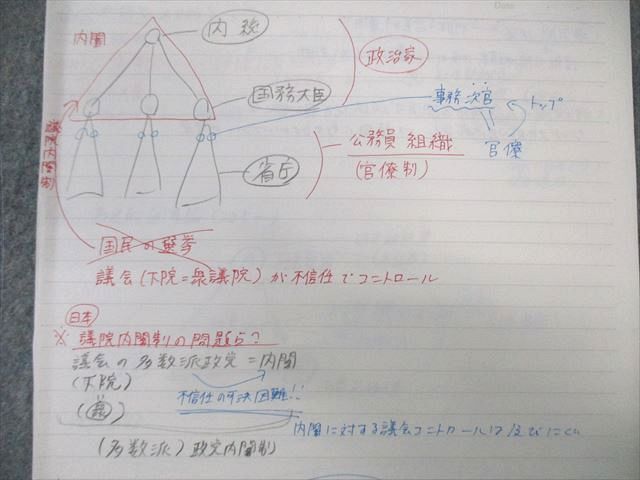 内閣
内総
政治家
国務大臣
事務次官
トップ
官僚
議院内閣制
公務員組織
(官僚制)
省庁
国民の選挙
議会(下院=衆議院)が不信任でコントロール
日本
※議院内閣制の問題点?
議会の多数派政党=内閣
(下院)
(衆)
不信任の可決困難!!
内閣に対する議会コントロールは及びにくい
(多数派)政党内閣制